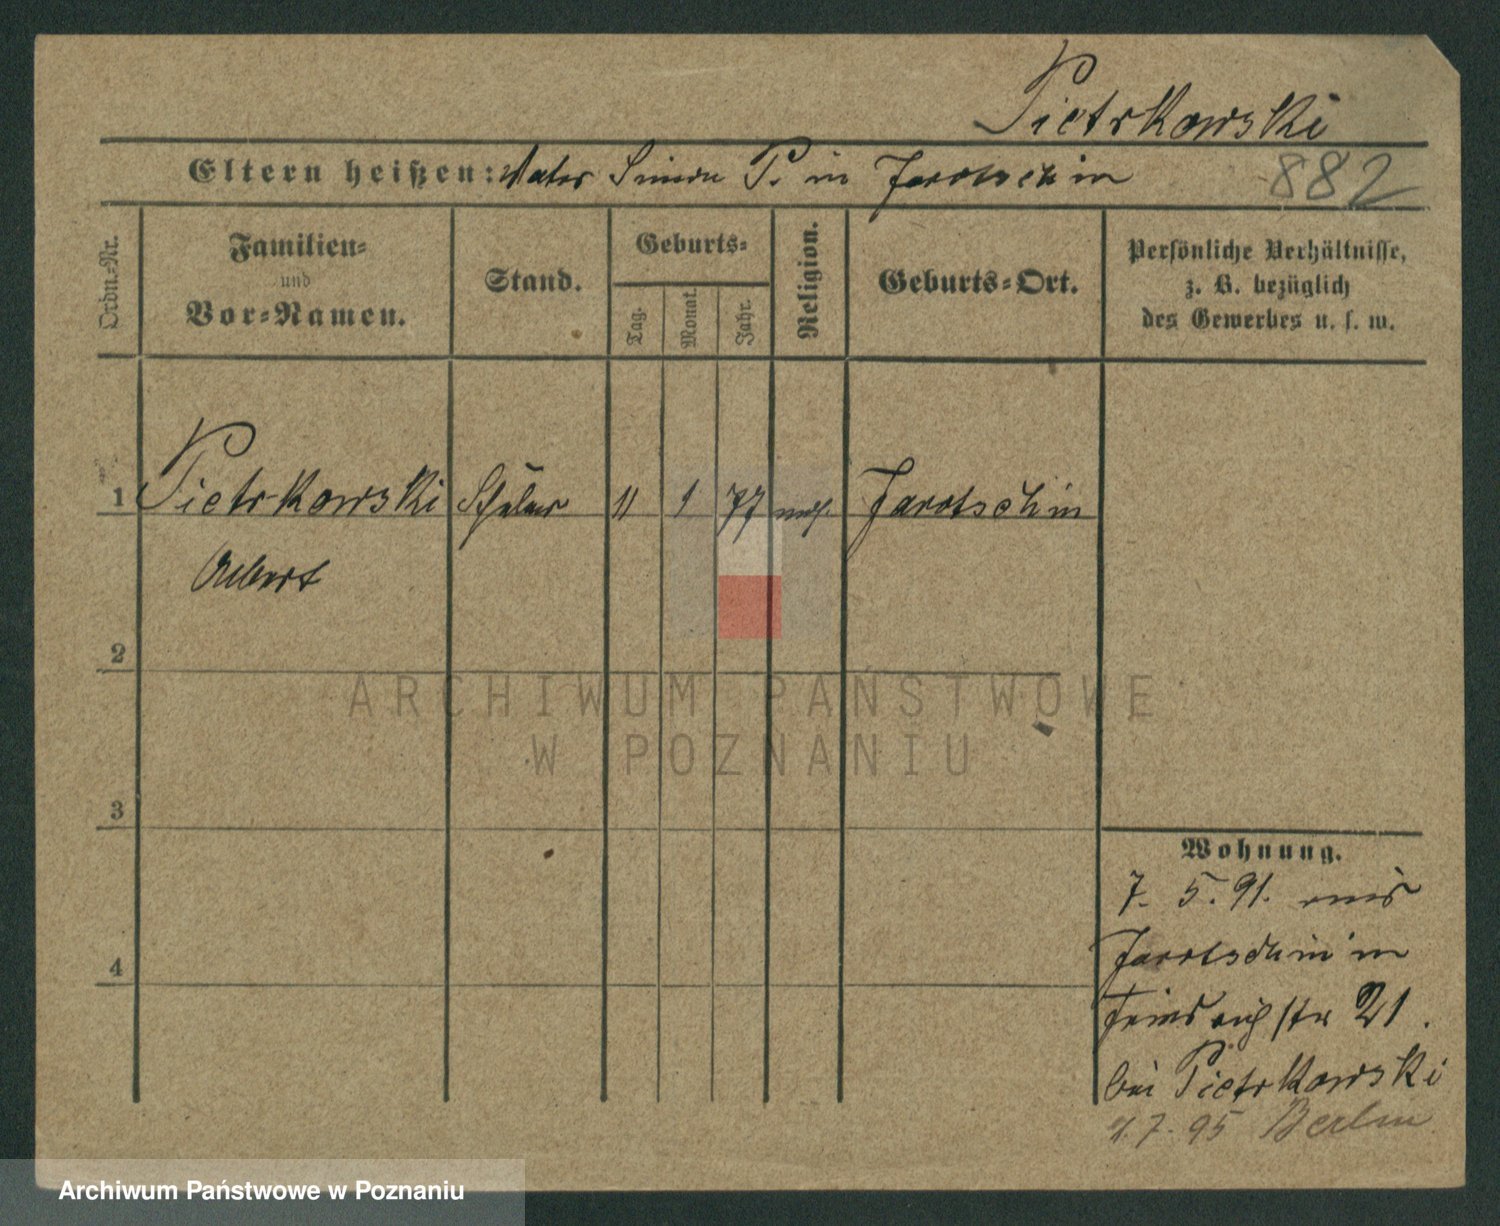 Pietrkowski
Eltern heißen: Vater Simon P. in Jarotschin 882
Ordn.-Nr.
Familien-
und
Vor-Namen.
Stand.
Geburts-
Tag.
Monat.
Jahr.
Religion.
Geburts-Ort.
Persönliche Verhältnisse,
z. B. bezüglich
des Gewerbes u. s. w.
1 Pietrkowski Schüler 11 1 77 mos. Jarotschin
Albert
2
ARCHIWUM PAŃSTWOWE
W POZNANIU
3
Wohnung.
7. 5. 91. aus
Jarotschin in
4
Friedrichstr 21.
bei Pietrkowski
7. 95 Berlin
Archiwum Państwowe w Poznaniu